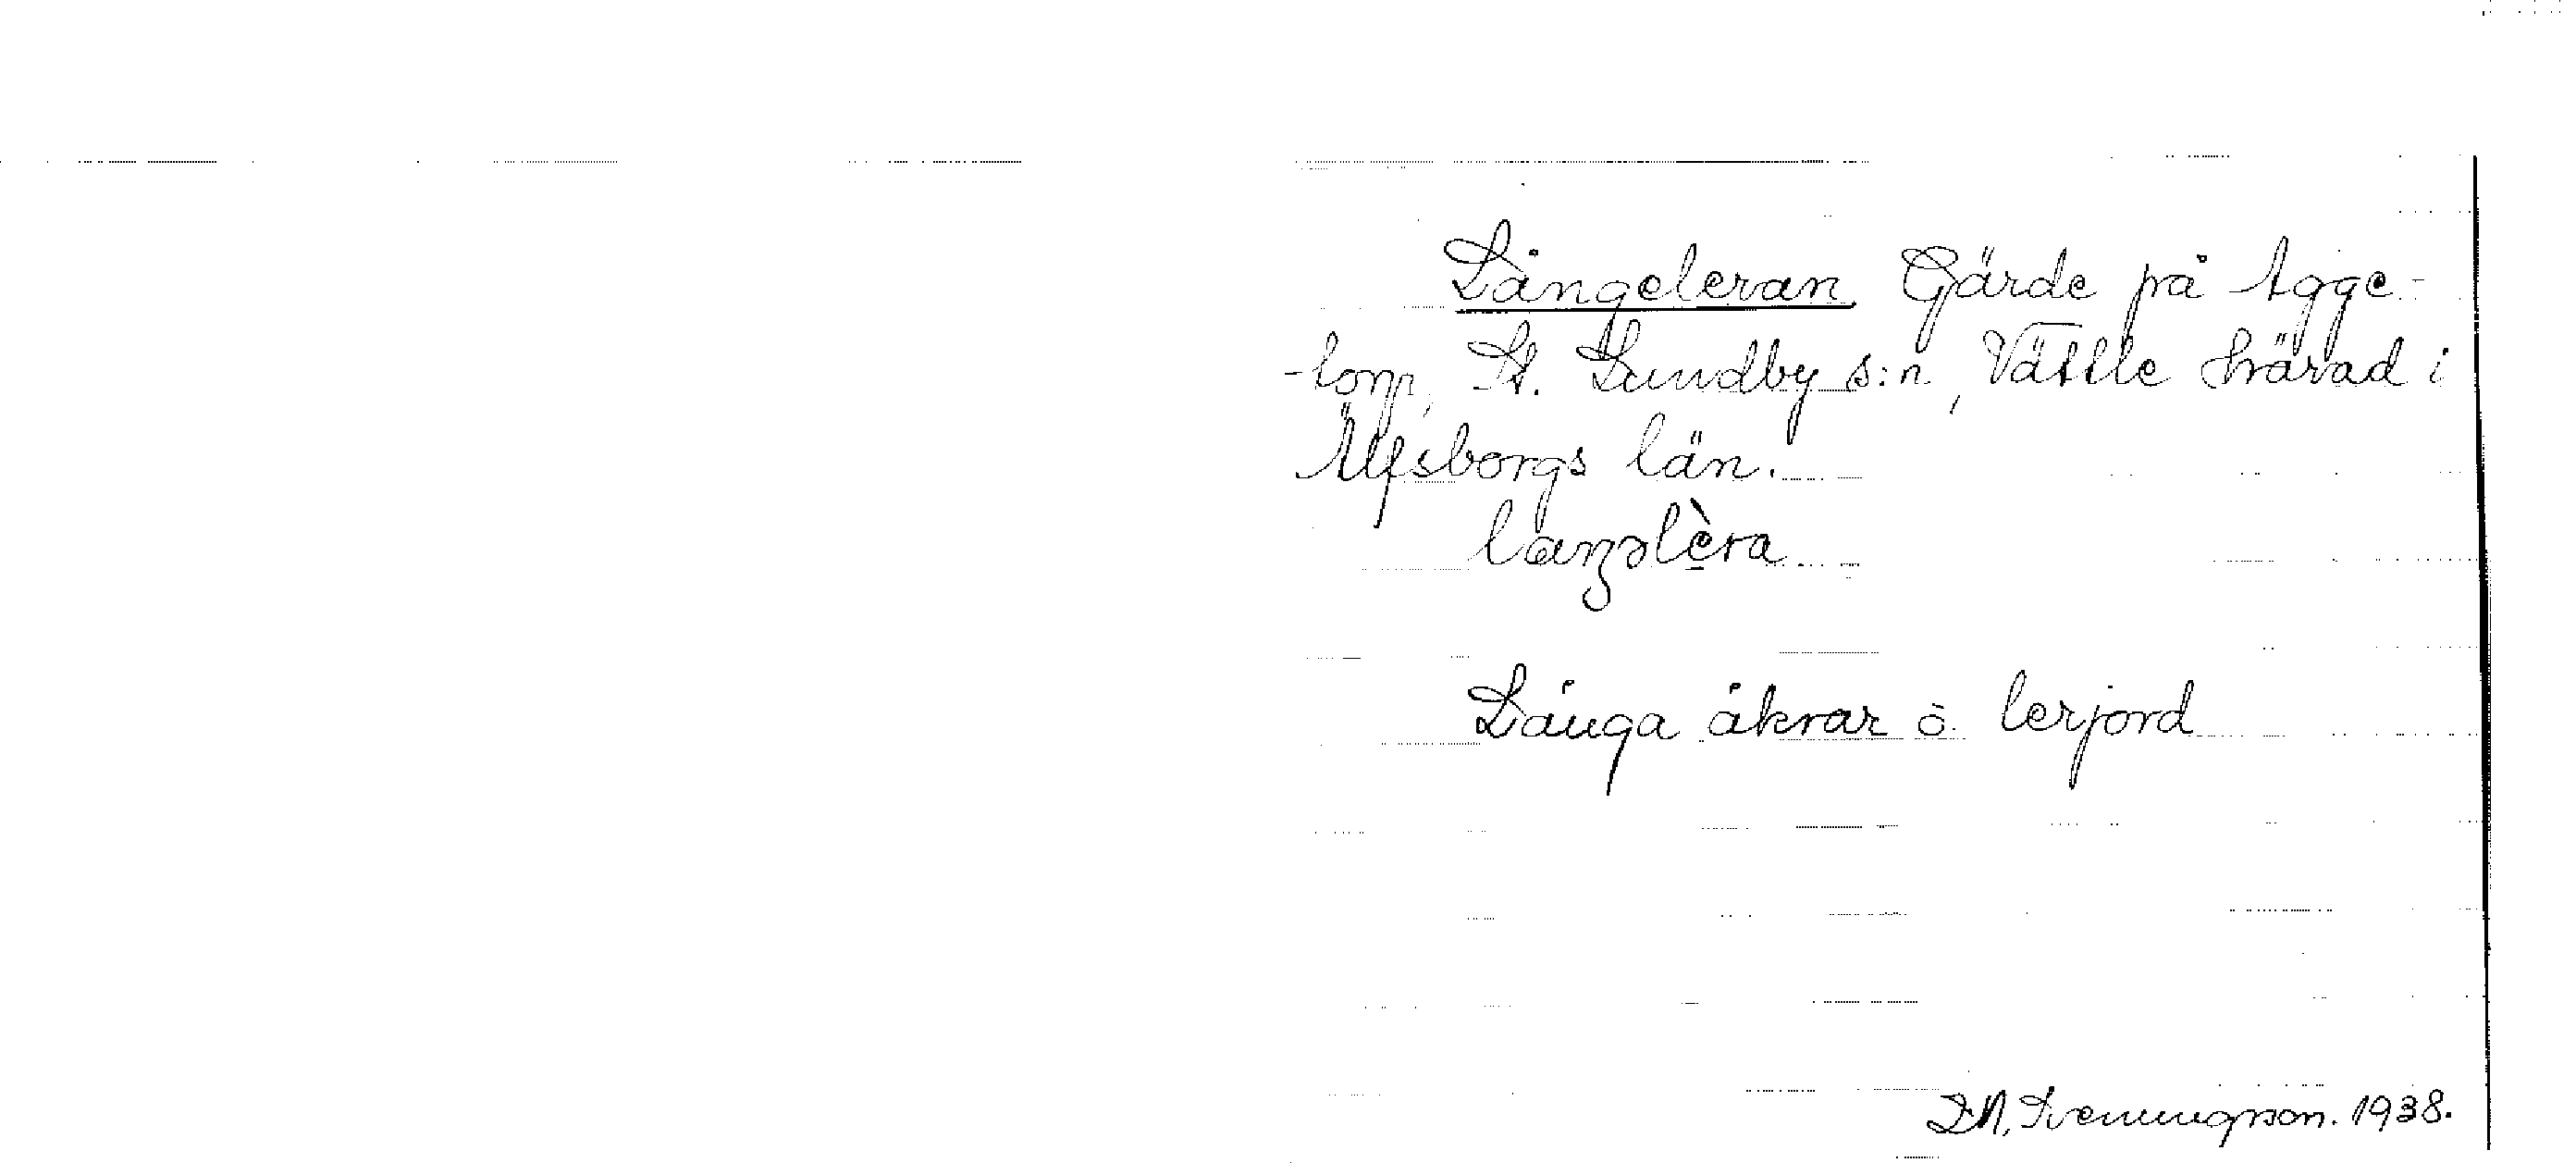 Långeleran Gärde på Agge-
-torp, St. Lundby s:n, Vättle härad i
Älfsborgs län.
laŋəlèra
Långa åkrar o. lerjord
1938.